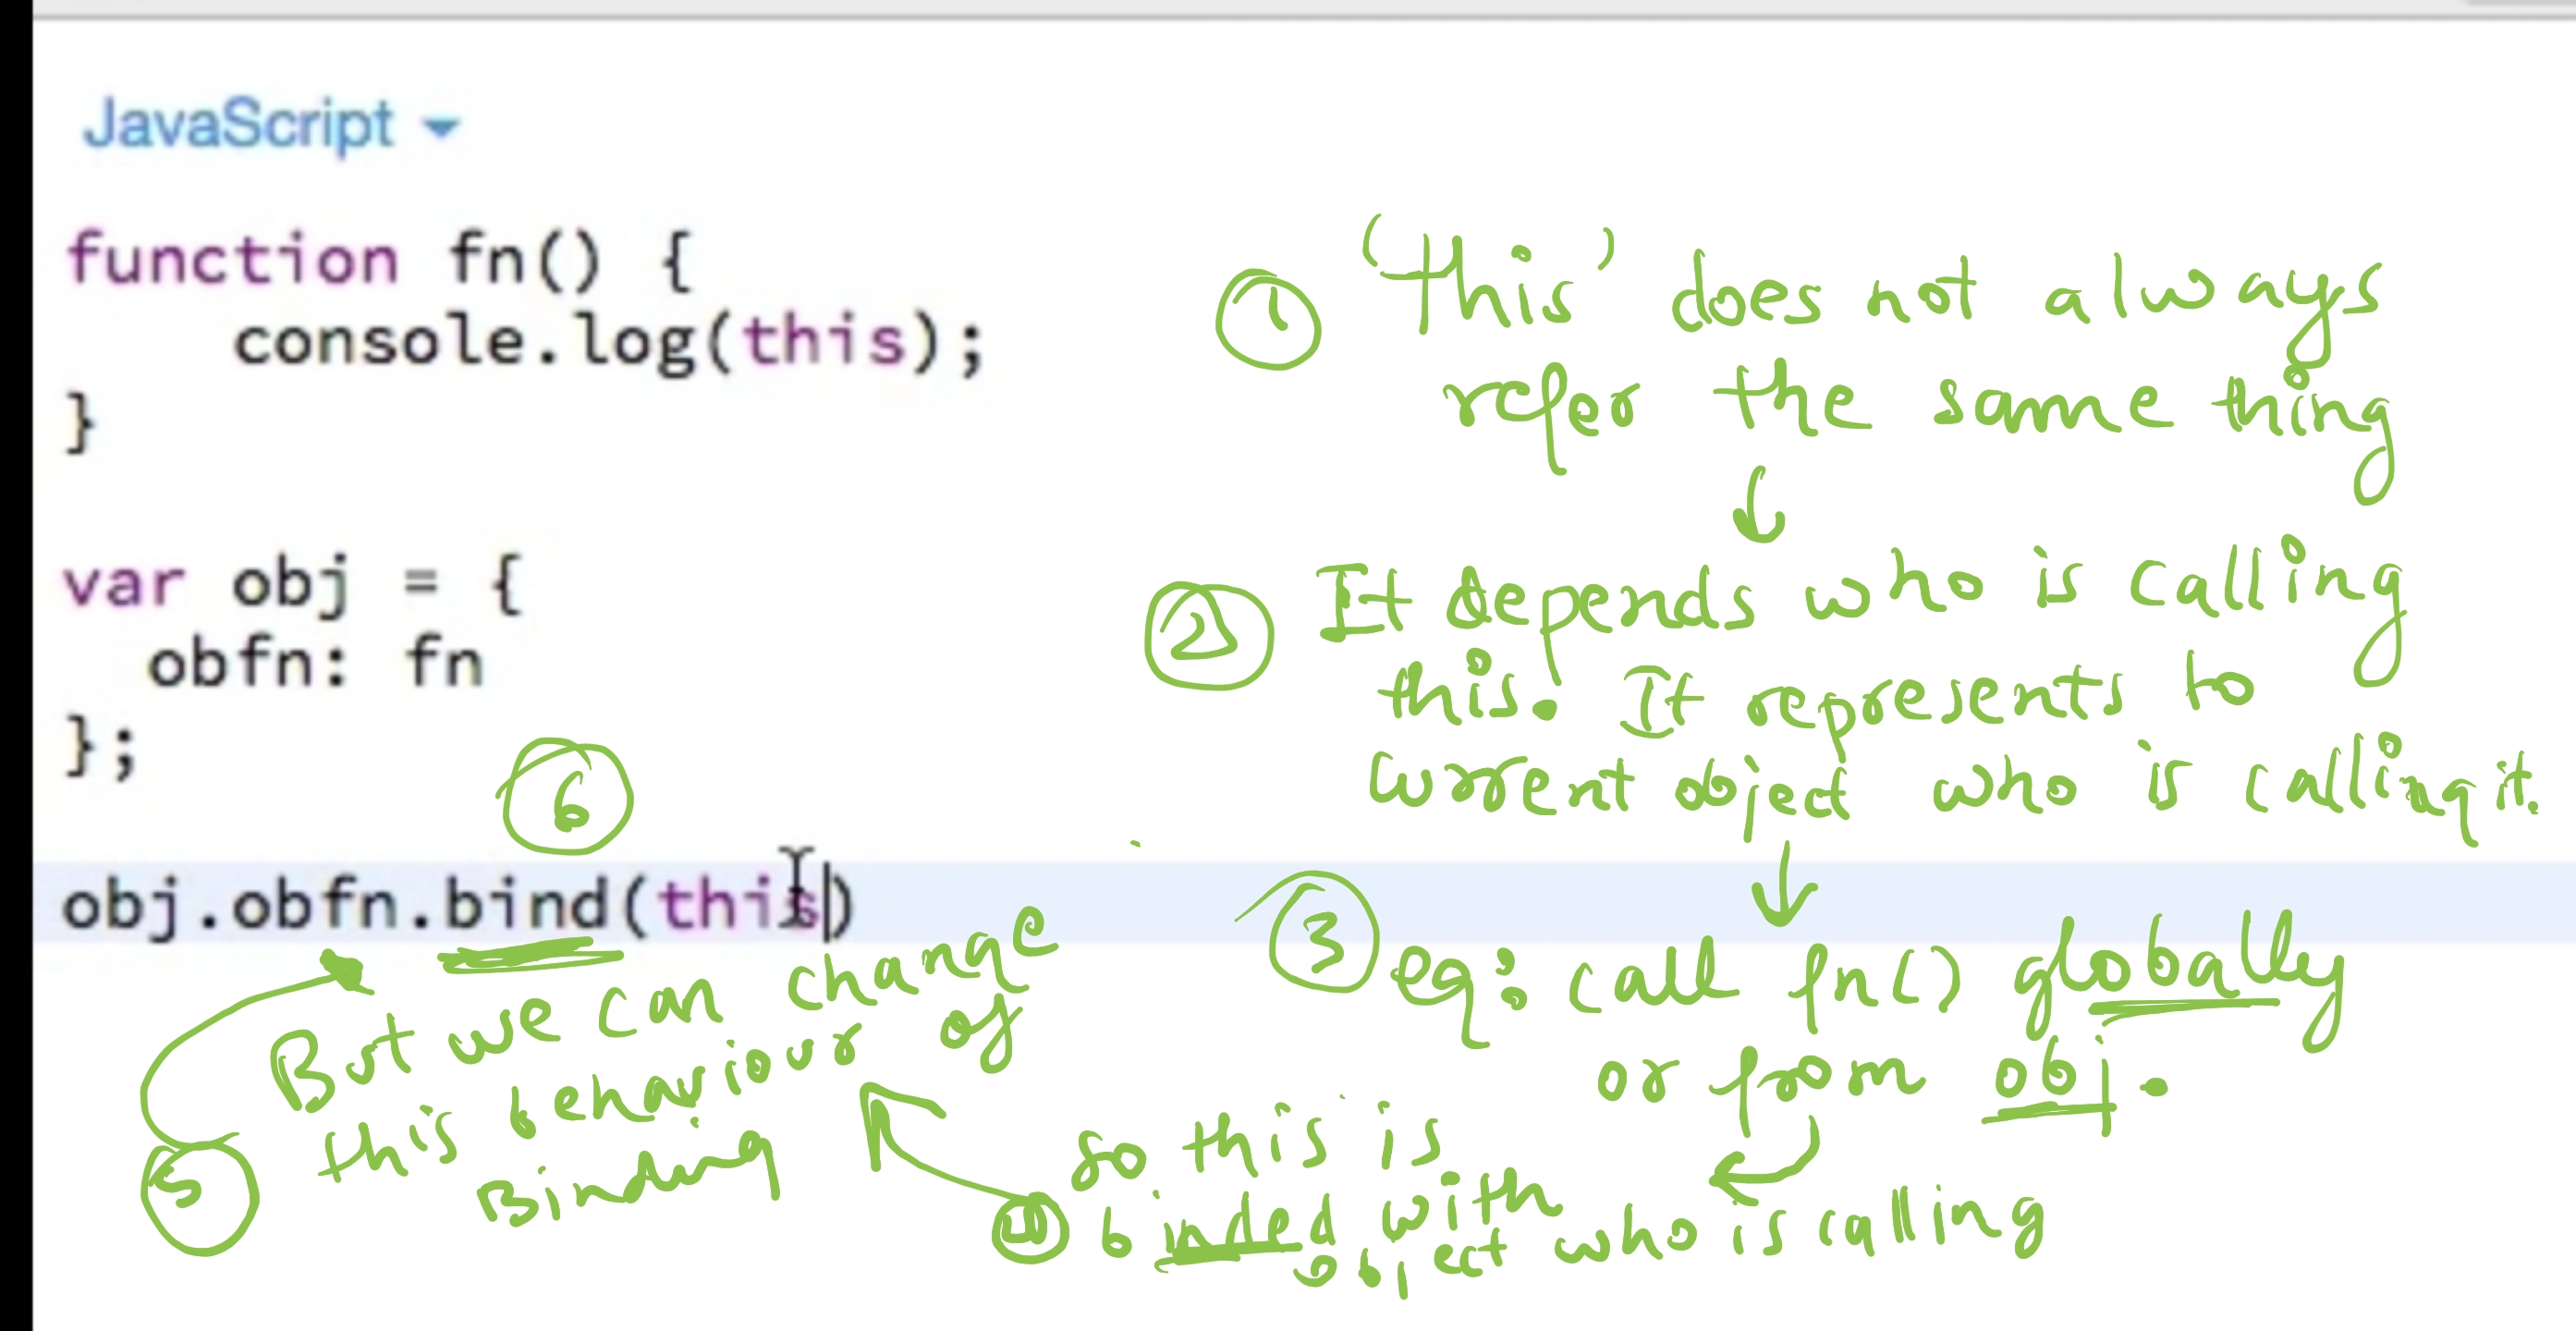 JavaScript
function fn() {
console.log(this);
}
var obj = {
obfn: fn
};
obj.obfn.bind(this)
① 'this' does not always
refer the same thing
② It depends who is calling
this. It represents to
current object who is calling it.
③ eg: call fn() globally
or from obj.
④ so this is
binded with
object who is calling
⑤ But we can change
this behaviour of
Binding
⑥